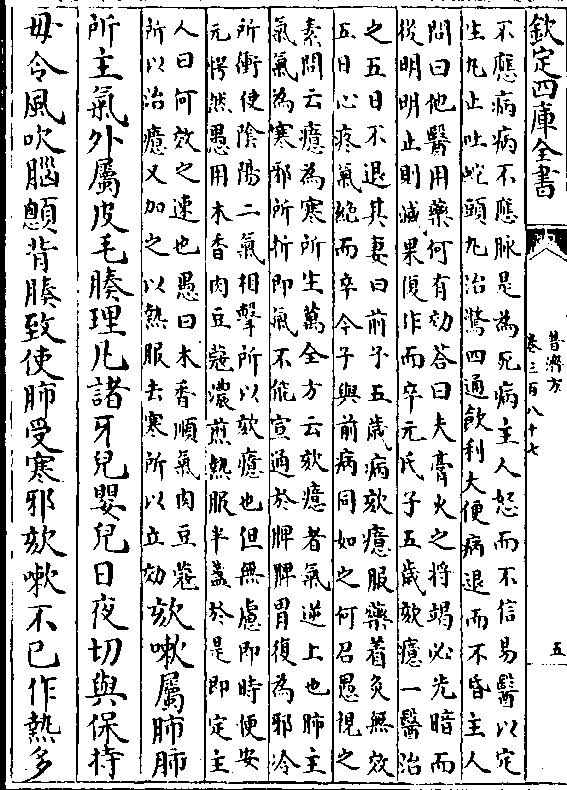 欽定四庫全書
普濟方
卷三百八十七
五
不應病病不應脉是為死病主人怒而不信易醫以定
生丸止吐蛇頭丸治驚四通飲利大便病退而不昏主人
問曰他醫用藥何有効答曰夫膏火之將竭必先暗而
後明明止則滅果復作而卒元氏子五歲欬癔一醫治
之五日不退其妻曰前子五歲病欬癔服藥着灸無效
五日心疼氣絶而卒今子與前病同如之何召愚視之
素問云癔為寒所生萬全方云欬癔者氣逆上也肺主
氣氣為寒邪所折即氣不能宣通於脾脾胃復為邪冷
所衝使陰陽二氣相擊所以欬癔也但無慮即時便安
元愕然愚用木香肉豆蔲濃煎熱服半盞於是即定主
人曰何效之速也愚曰木香順氣肉豆蔲
所以治癔又加之以熱服去寒所以立効
欬嗽屬肺肺
所主氣外屬皮毛腠理凡諸牙兒嬰兒日夜切與保持
毋令風吹腦顖背腠致使肺受寒邪欬嗽不已作熱多